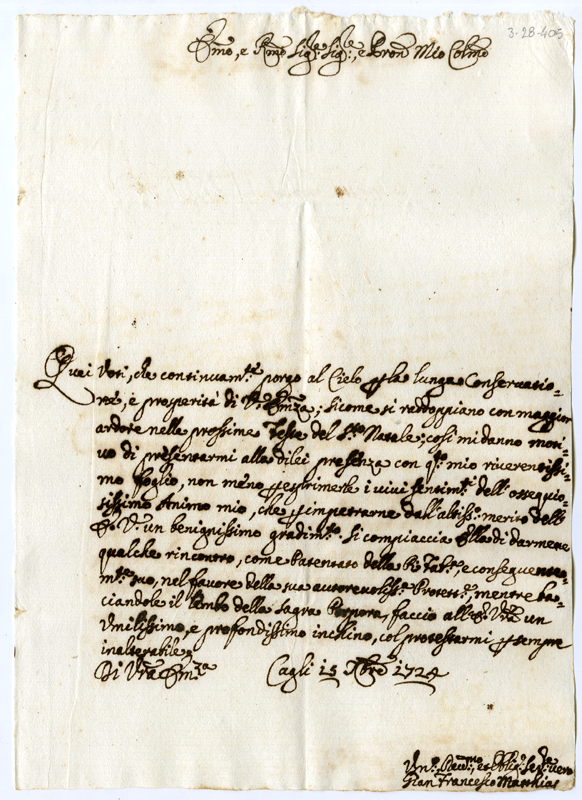 3-28-405
Emo, e Rmo Sigr: Sigr:, e Pron Mio Colmo
Quei Voti, che continuamte porgo al Cielo p la lunga Conservatio-
ne, e prosperità di Va: Emza; sicome si raddoppiano con maggior
ardore nelle prossime Feste del Sto Natale; così mi danno moti-
vo di presentarmi alla di lei presenza con qto mio riverentissi-
mo foglio, non meno p esprimerle i vivi sentimti dell'ossequio-
sissimo Animo mio, che p impetrarne dall'altiss: merito dell'
Ea: Va: un benignissimo gradimto. Si compiaccia Ella di darmene
qualche rincontro, come Patentato della
mte suo, nel favore della sua autorevoliss: Protette, mentre ba-
ciandole il lembo della Sagra Porpora, faccio all'Ea: Vra un
Umilissimo, e profondissimo inchino, col protestarmi p sempre
inalterabile
Di Vra Emza Cagli 15 Xbre 1724
Umo: Devmo, et Obligo: Sere vero
Gian Francesco Matthias